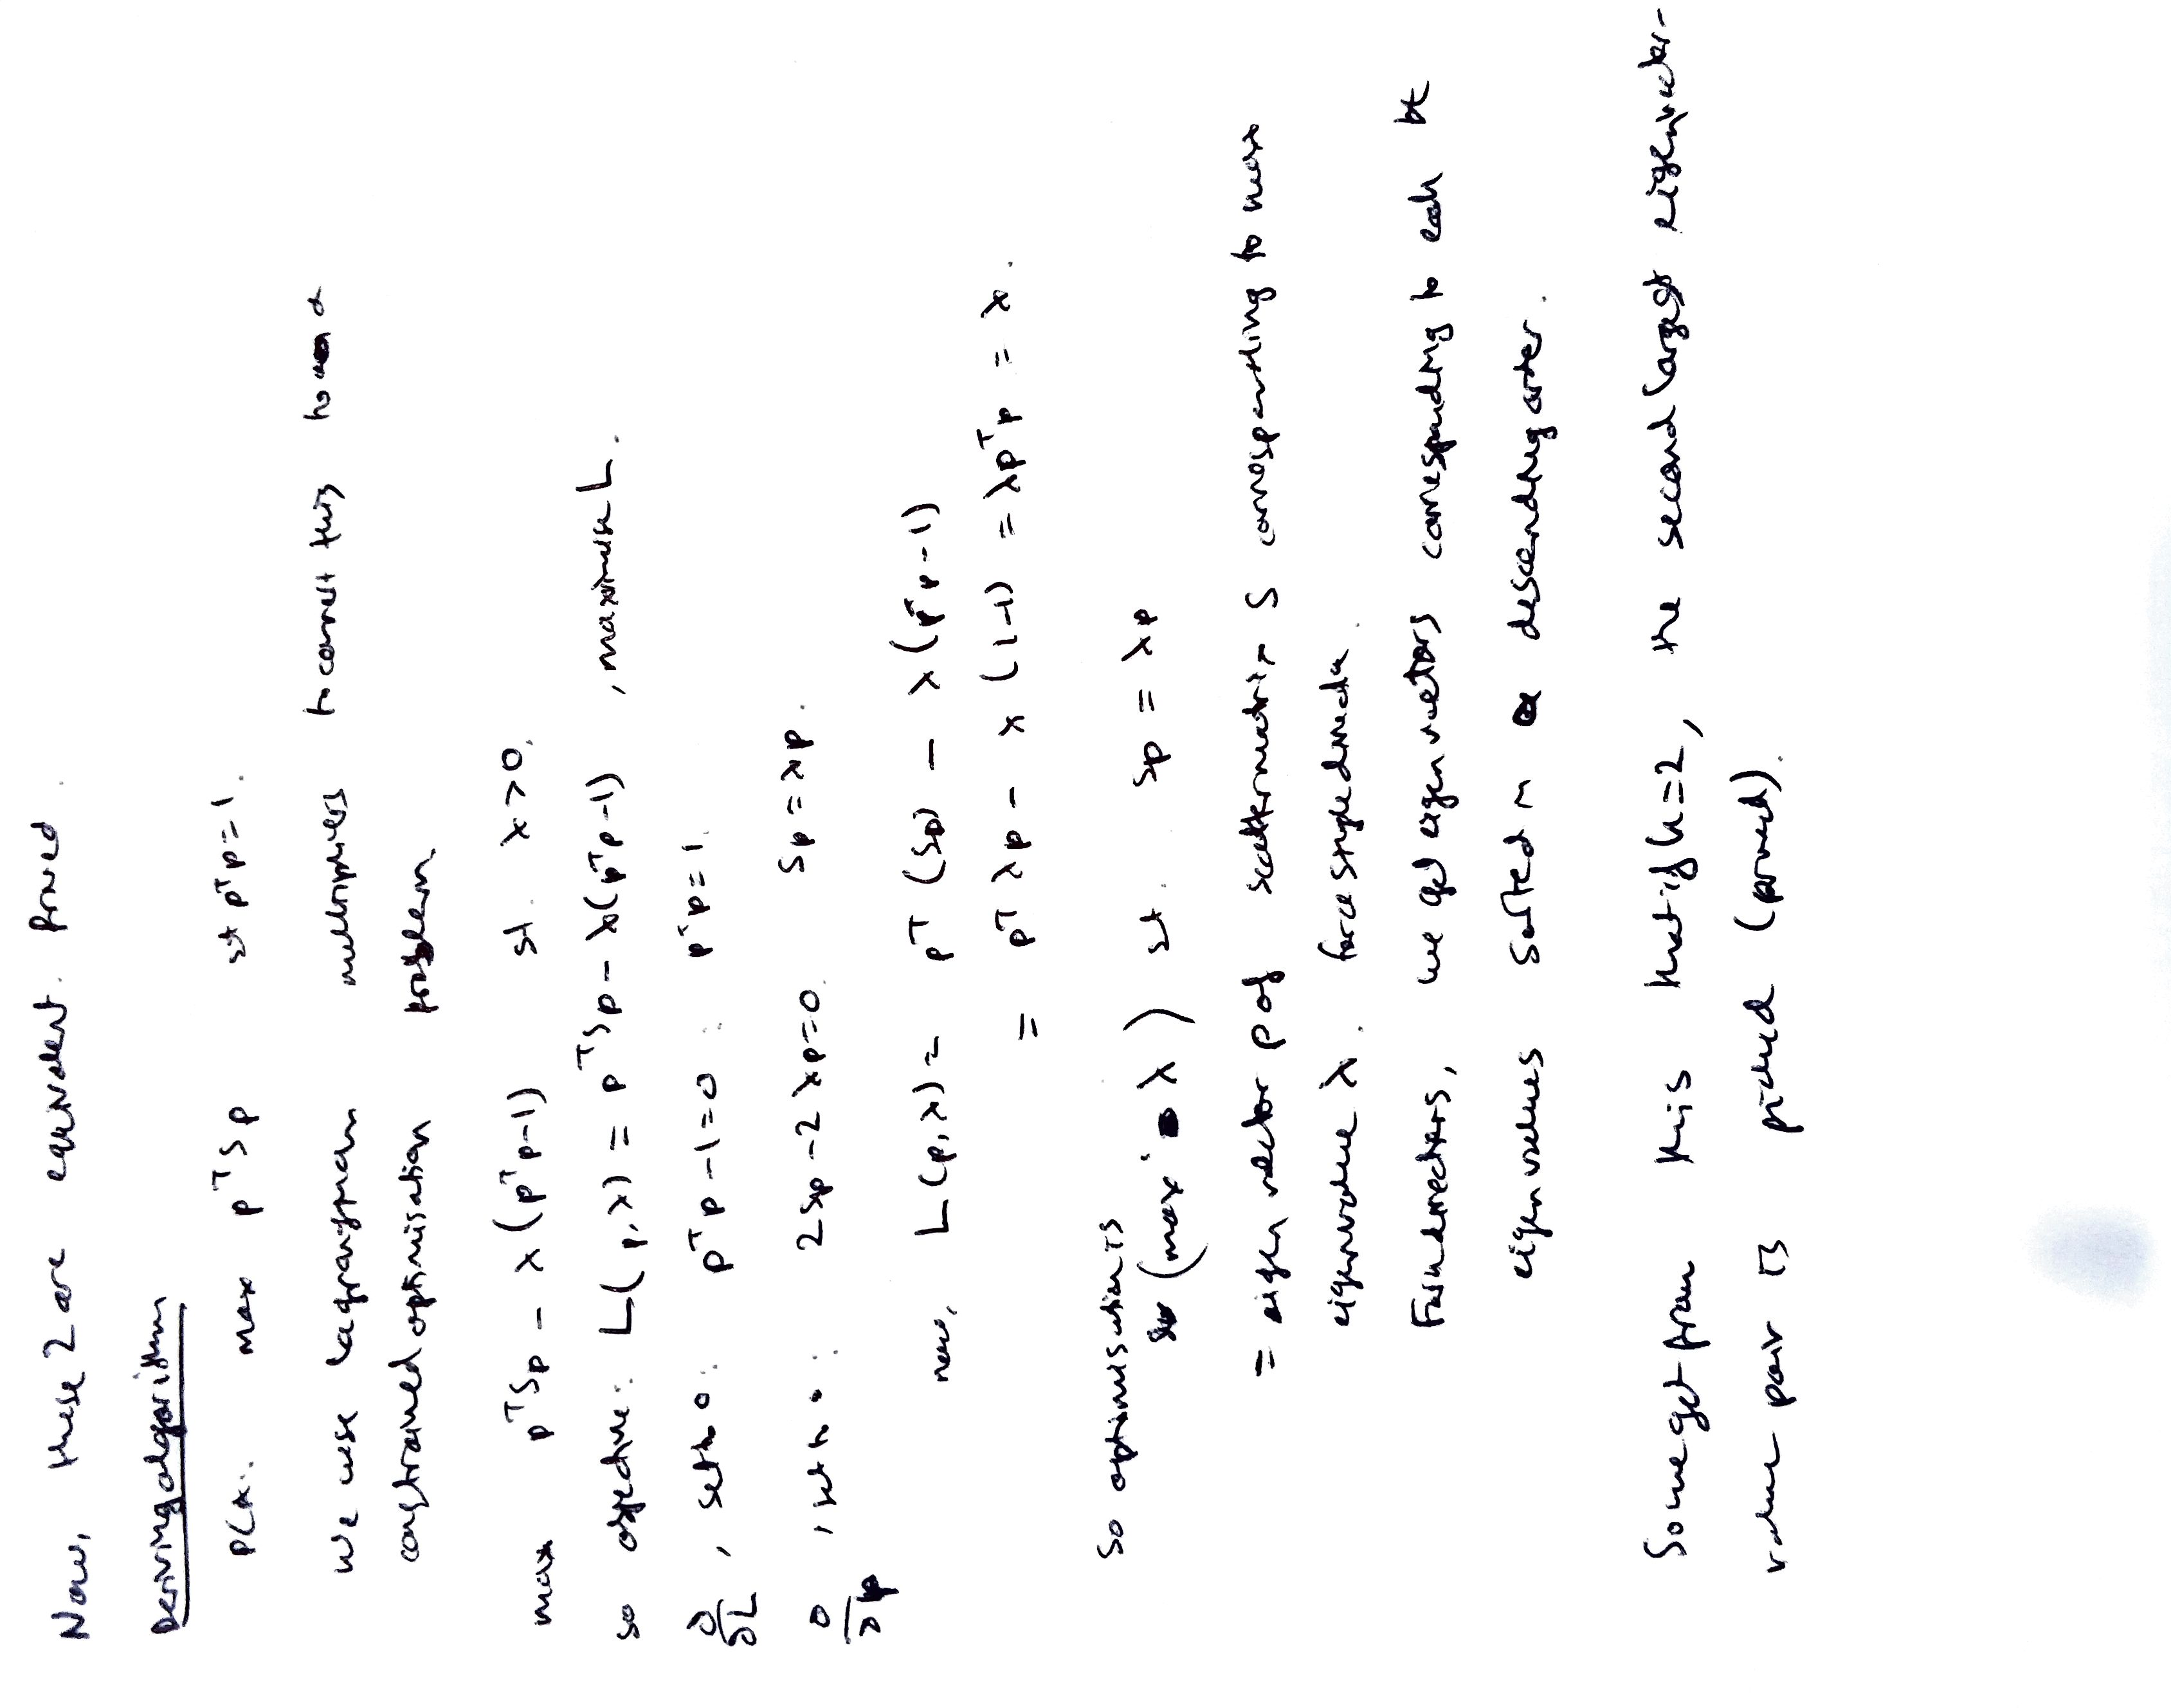 Now, these 2 are equivalent. Proved.
Deriving algorithm
PCA: max pᵀSp st pᵀp=1.
We use lagrangian multipliers to convert this to a
constrained optimisation problem.
max pᵀSp - λ(pᵀp-1) st λ>0.
so objective: L(p,λ) = pᵀSp - λ(pᵀp-1) , maximise L.
∂/∂L , set to 0 : pᵀp-1=0 ∴ pᵀp=1.
∂/∂p , set to 0 : 2Sp-2λp=0. Sp=λp.
now, L(p,λ) = pᵀ(Sp) - λ(pᵀp-1)
= pᵀλp - λ(1-1) = λpᵀp = λ.
So optimisation is
(max λ) st. Sp = λp
= eigen vector p of scatter matrix S corresponding to max
eigenvalue λ. for a single direction.
For n directions, we get eigen vectors corresponding to each
eigen values sorted in descending order.
So we get from this that if n=2, the second largest eigenvector-
value pair is picked (proved).